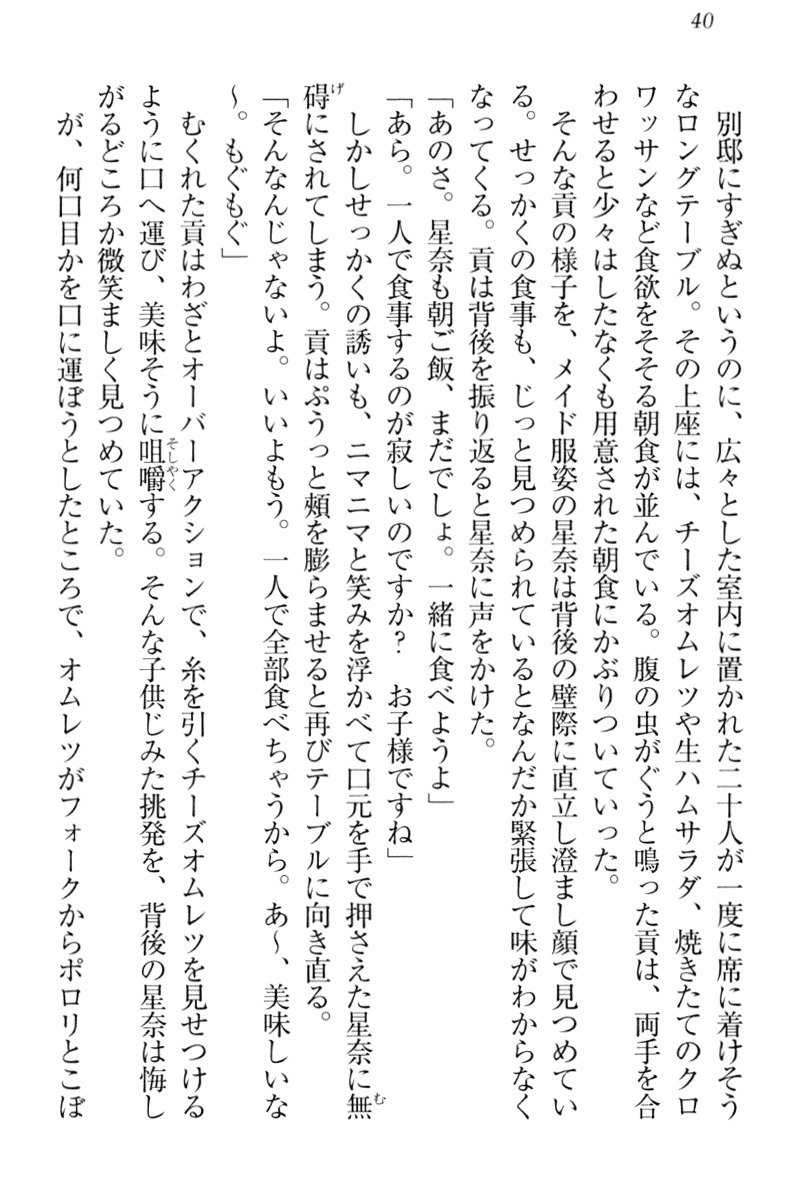 40
別邸にすぎぬというのに、広々とした室内に置かれた二十人が一度に席に着けそう
なロングテーブル。その上座には、チーズオムレツや生ハムサラダ、焼きたてのクロ
ワッサンなど食欲をそそる朝食が並んでいる。腹の虫がぐうと鳴った貢は、両手を合
わせると少々はしたなくも用意された朝食にかぶりついていった。
そんな貢の様子を、メイド服姿の星奈は背後の壁際に直立し澄まし顔で見つめてい
る。せっかくの食事も、じっと見つめられているとなんだか緊張して味がわからなく
なってくる。貢は背後を振り返ると星奈に声をかけた。
「あのさ。星奈も朝ご飯、まだでしょ。一緒に食べようよ」
「あら。一人で食事するのが寂しいのですか？　お子様ですね」
しかしせっかくの誘いも、ニマニマと笑みを浮かべて口元を手で押さえた星奈に無む
碍げにされてしまう。貢はぷうっと頰を膨らませると再びテーブルに向き直る。
「そんなんじゃないよ。いいよもう。一人で全部食べちゃうから。あ～、美味しいな
～。もぐもぐ」
むくれた貢はわざとオーバーアクションで、糸を引くチーズオムレツを見せつける
ように口へ運び、美味そうに咀嚼そしやくする。そんな子供じみた挑発を、背後の星奈は悔し
がるどころか微笑ましく見つめていた。
が、何口目かを口に運ぼうとしたところで、オムレツがフォークからポロリとこぼ